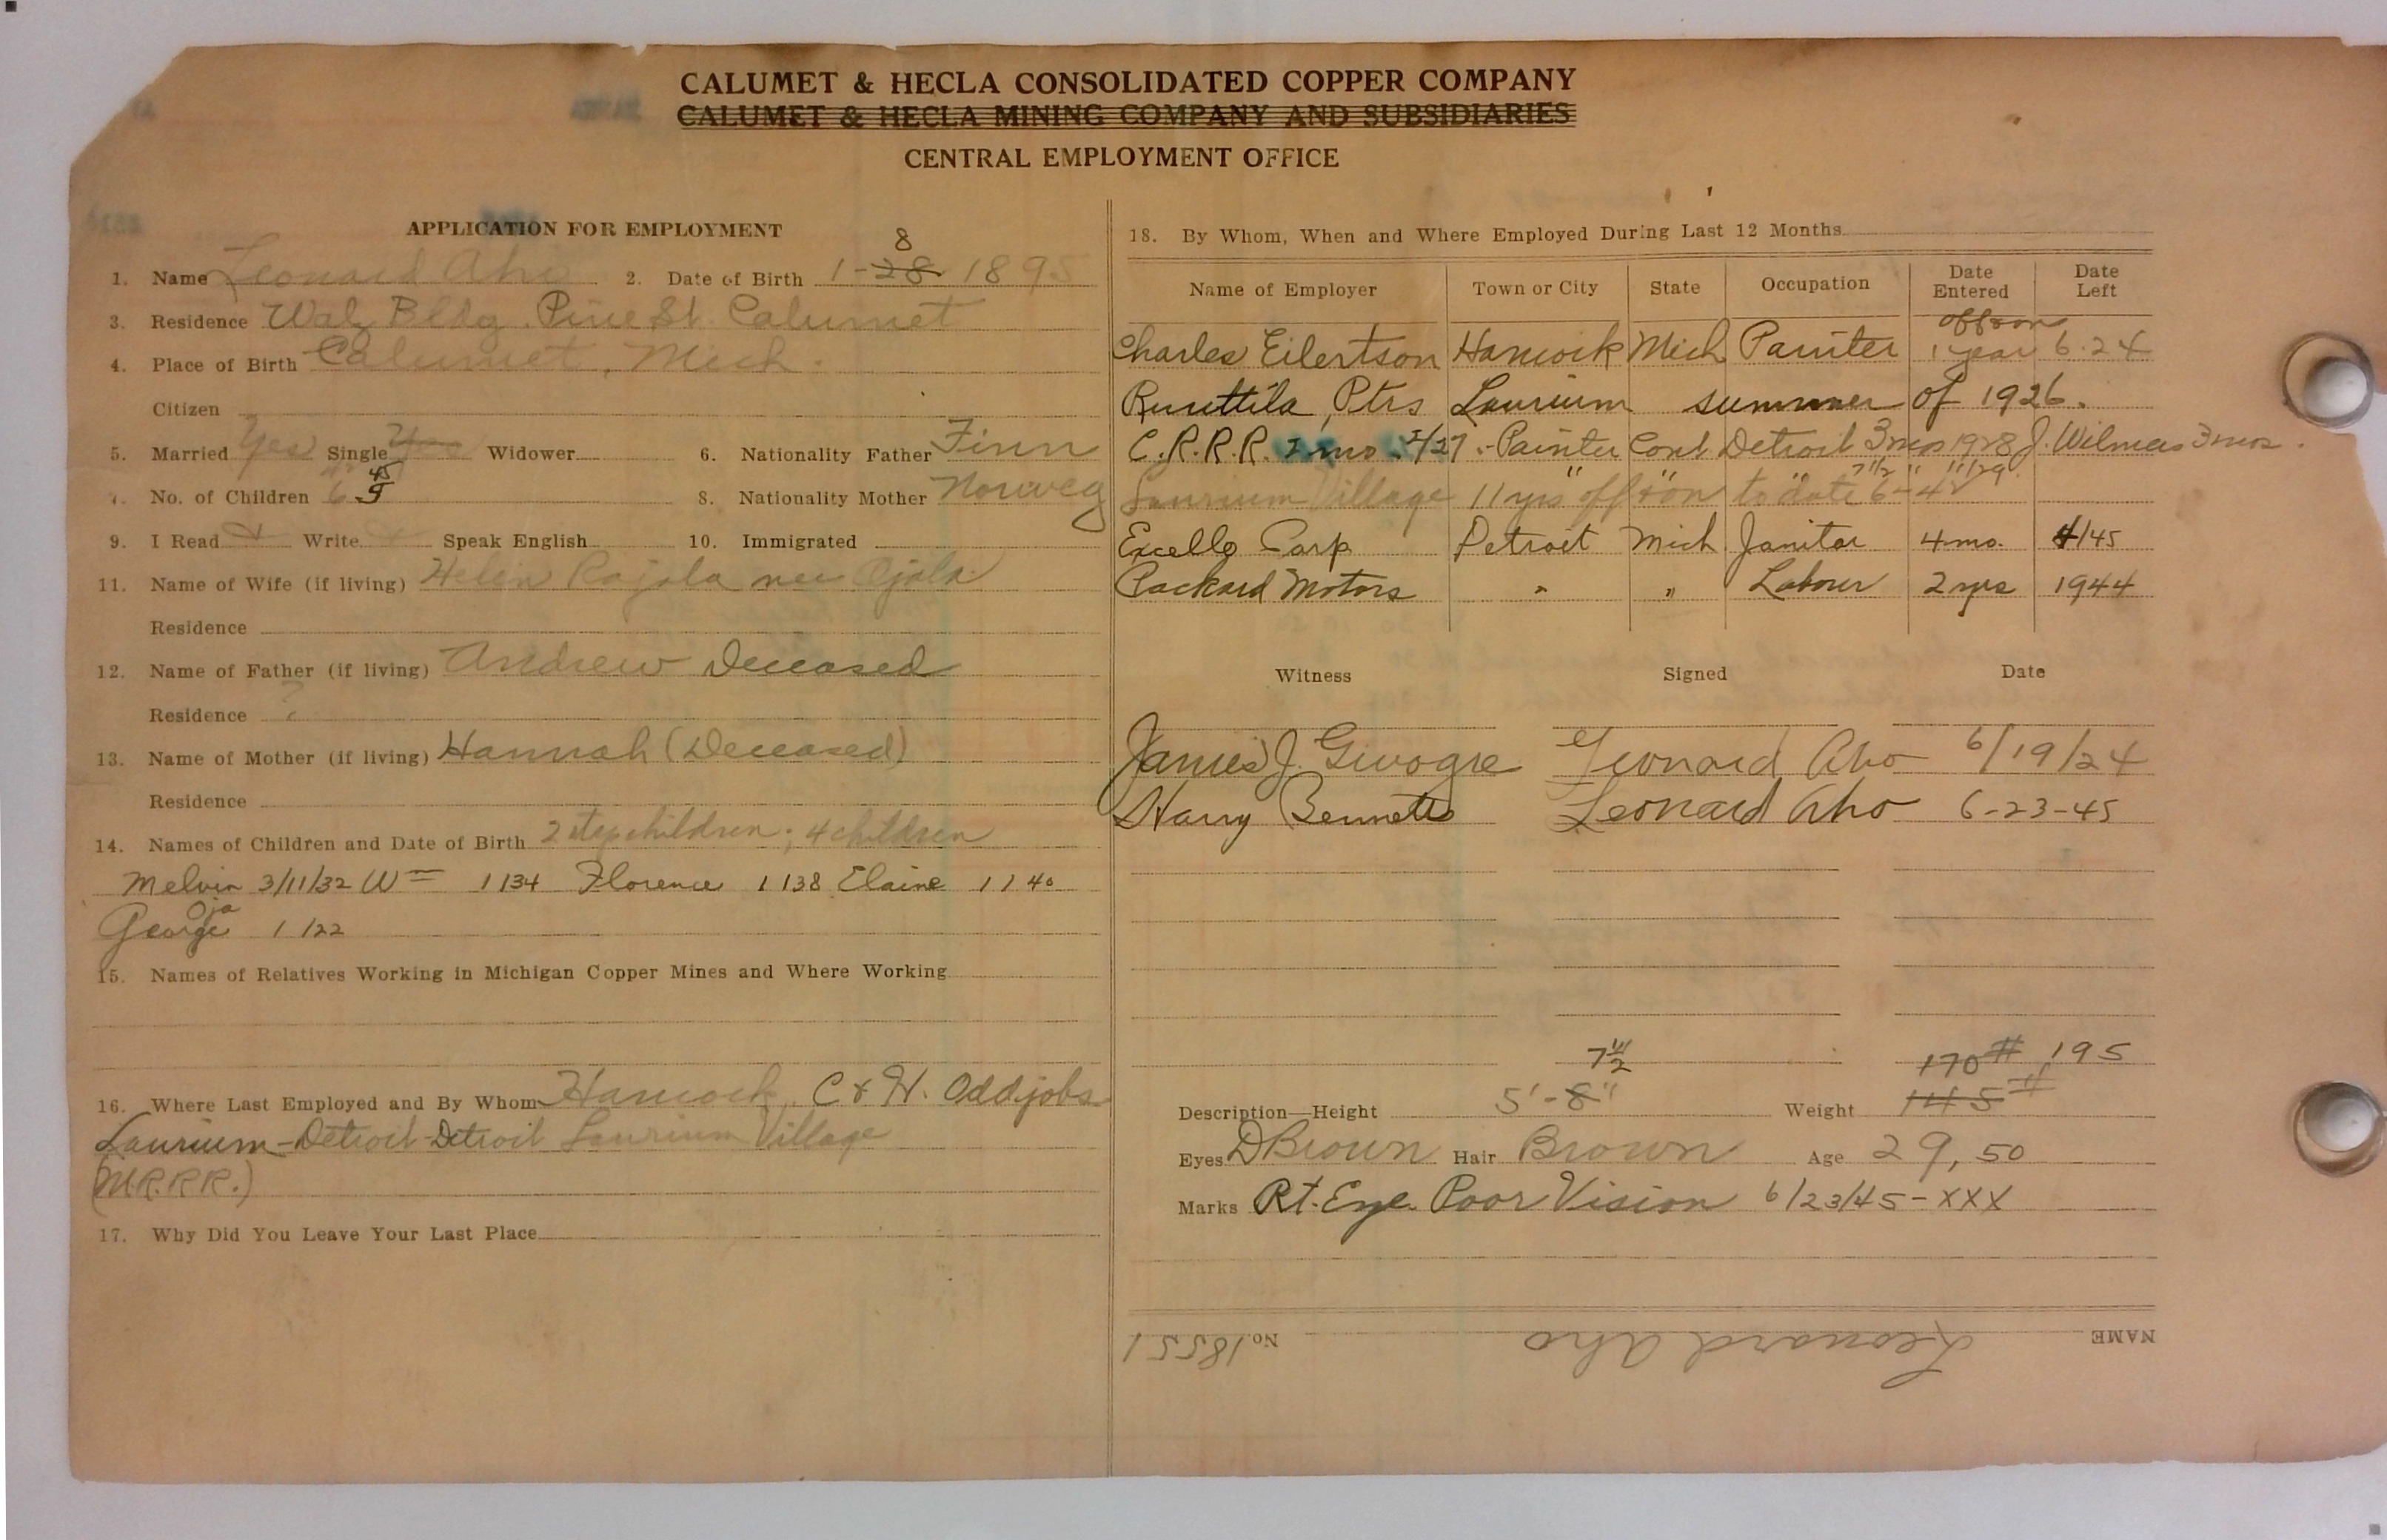 CALUMET & HECLA CONSOLIDATED COPPER COMPANY
CALUMET & HECLA MINING COMPANY AND SUBSIDIARIES
CENTRAL EMPLOYMENT OFFICE
APPLICATION FOR EMPLOYMENT
8
1. Name Leonard Aho 2. Date of Birth 1-28 1895
3. Residence Walz Bldg. Pine St. Calumet
4. Place of Birth Calumet, Mich.
Citizen
5. Married Yes Single Yes Widower 6. Nationality Father Finn
45
7. No. of Children 6 5 8. Nationality Mother Norweg
9. I Read Write Speak English 10. Immigrated
11. Name of Wife (if living) Helen Rajala nee Ojala
Residence
12. Name of Father (if living) Andrew Deceased
Residence ?
13. Name of Mother (if living) Hannah (Deceased)
Residence
14. Names of Children and Date of Birth 2 stepchildren; 4 children
Melvin 3/11/32 Wm 1 134 Florence 1 138 Elaine 1 1 40
Oja
George 1 122
15. Names of Relatives Working in Michigan Copper Mines and Where Working
16. Where Last Employed and By Whom Hancock, C & H. Oddjobs
Laurium-Detroit-Detroit Laurium Village
(M.R.R.R.)
17. Why Did You Leave Your Last Place
18. By Whom, When and Where Employed During Last 12 Months
Name of Employer Town or City State Occupation Date Entered Date Left
off & on
Charles Eilertson Hancock Mich Painter 1 year 6-24
Ruuttila, Ptrs Laurium summer of 1926.
C.R.R.R. 2 mo. /27.-Painter Cont Detroit 3 mos 1928 J. Wilmers 3 mos.
7 1/2 " 11/29.
Laurium Village 11 yrs off & on to date 6-4
Excello Corp. Detroit Mich. Janitor 4 mo. 4/45
Packard Motors " " Labour 2 yrs 1944
Witness Signed Date
James J. Leonard Aho 6/19/24
Harry Bennetts Leonard Aho 6-23-45
7 1/2" 170# 195
Description—Height 5'-8" Weight 145#
Eyes D Brown Hair Brown Age 29, 50
Marks Rt. Eye Poor Vision 6/23/45-XXX
NAME Leonard Aho No. 18551